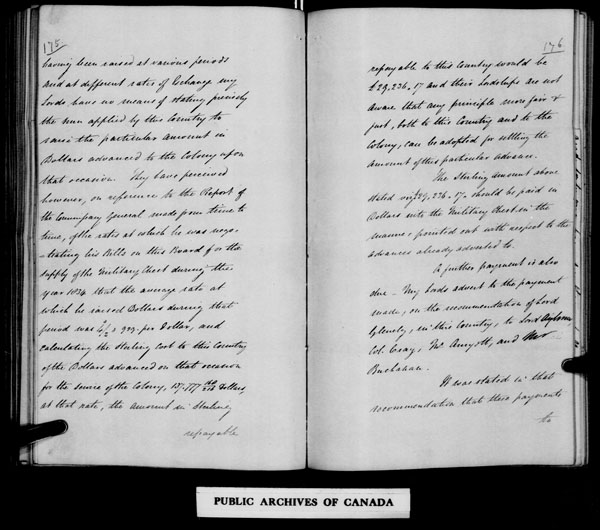 175
having been raised at various periods
and at different rates of Exchange my
Lords have no means of stating precisely
the sum applied by this Country to
raise the particular amount in
Dollars advanced to the Colony upon
that occasion. They have perceived
however, on reference to the Report of
the Commissary General made from time to
time, of the rates at which he was nego-
-tiating his Bills on this Board for the
supply of the Military Chest during the
year 1834 that the average rate at
which he raised Dollars during that
period was 4/2 per Dollar, and
calculating the Sterling Cost to this Country
of the Dollars advanced on that occasion
for the service of the Colony, Dollars,
at that rate, the amount in Sterling
repayable
176
repayable to this Country would be
£29,236.17 and their Lordships are not
aware that any principle more fair &
just, both to this Country and to the
Colony, can be adopted for settling the
amount of this particular advance.
The Sterling amount above
stated viz £29,236.17. should be paid in
Dollars into the Military Chest in the
manner pointed out with respect to the
advances already adverted to.
A further payment is also
due – My Lords advert to the payment
made, on the recommendation of Lord
Glenelg, in this Country, to Lord Aylmer,
Col. Craig, Mr Amyott, and
Buchanan.
It was stated in that
recommendation that these payments
to
PUBLIC ARCHIVES OF CANADA